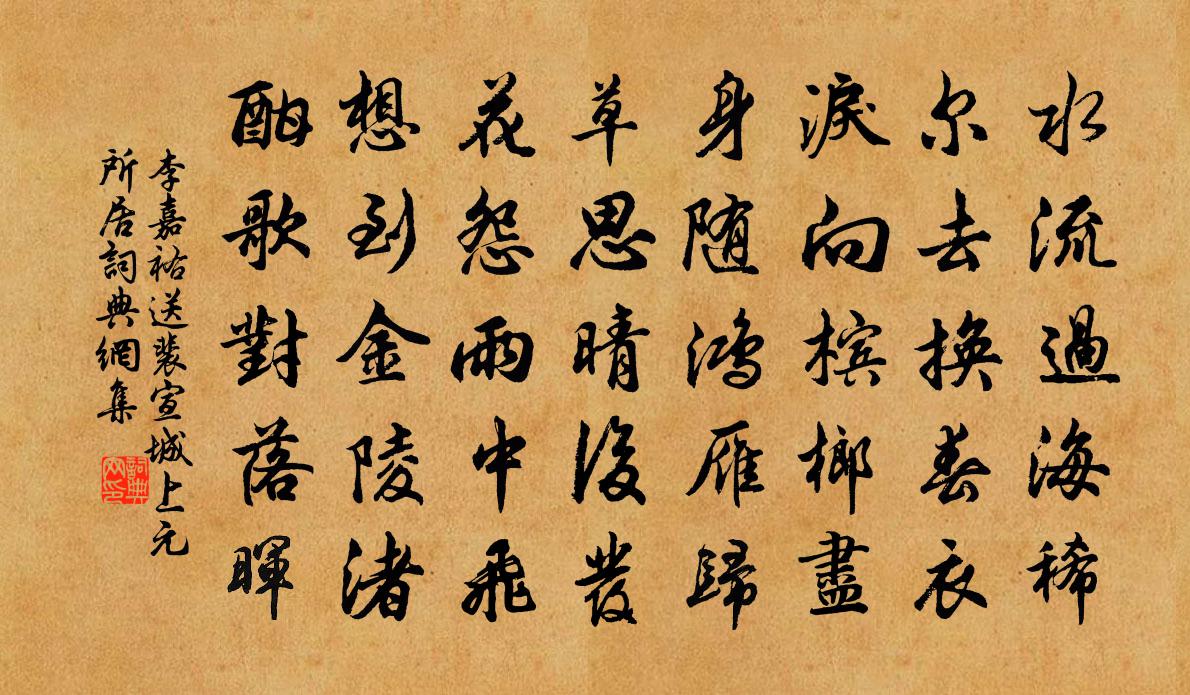 水流過海稀
尔去換春衣
淚向檳榔盡
身随鴻雁歸
草思晴後發
花怨雨中飛
想到金陵渚
酣歌對落暉
李嘉祐送裴宣城上元
所居詞典網集
詞典網印